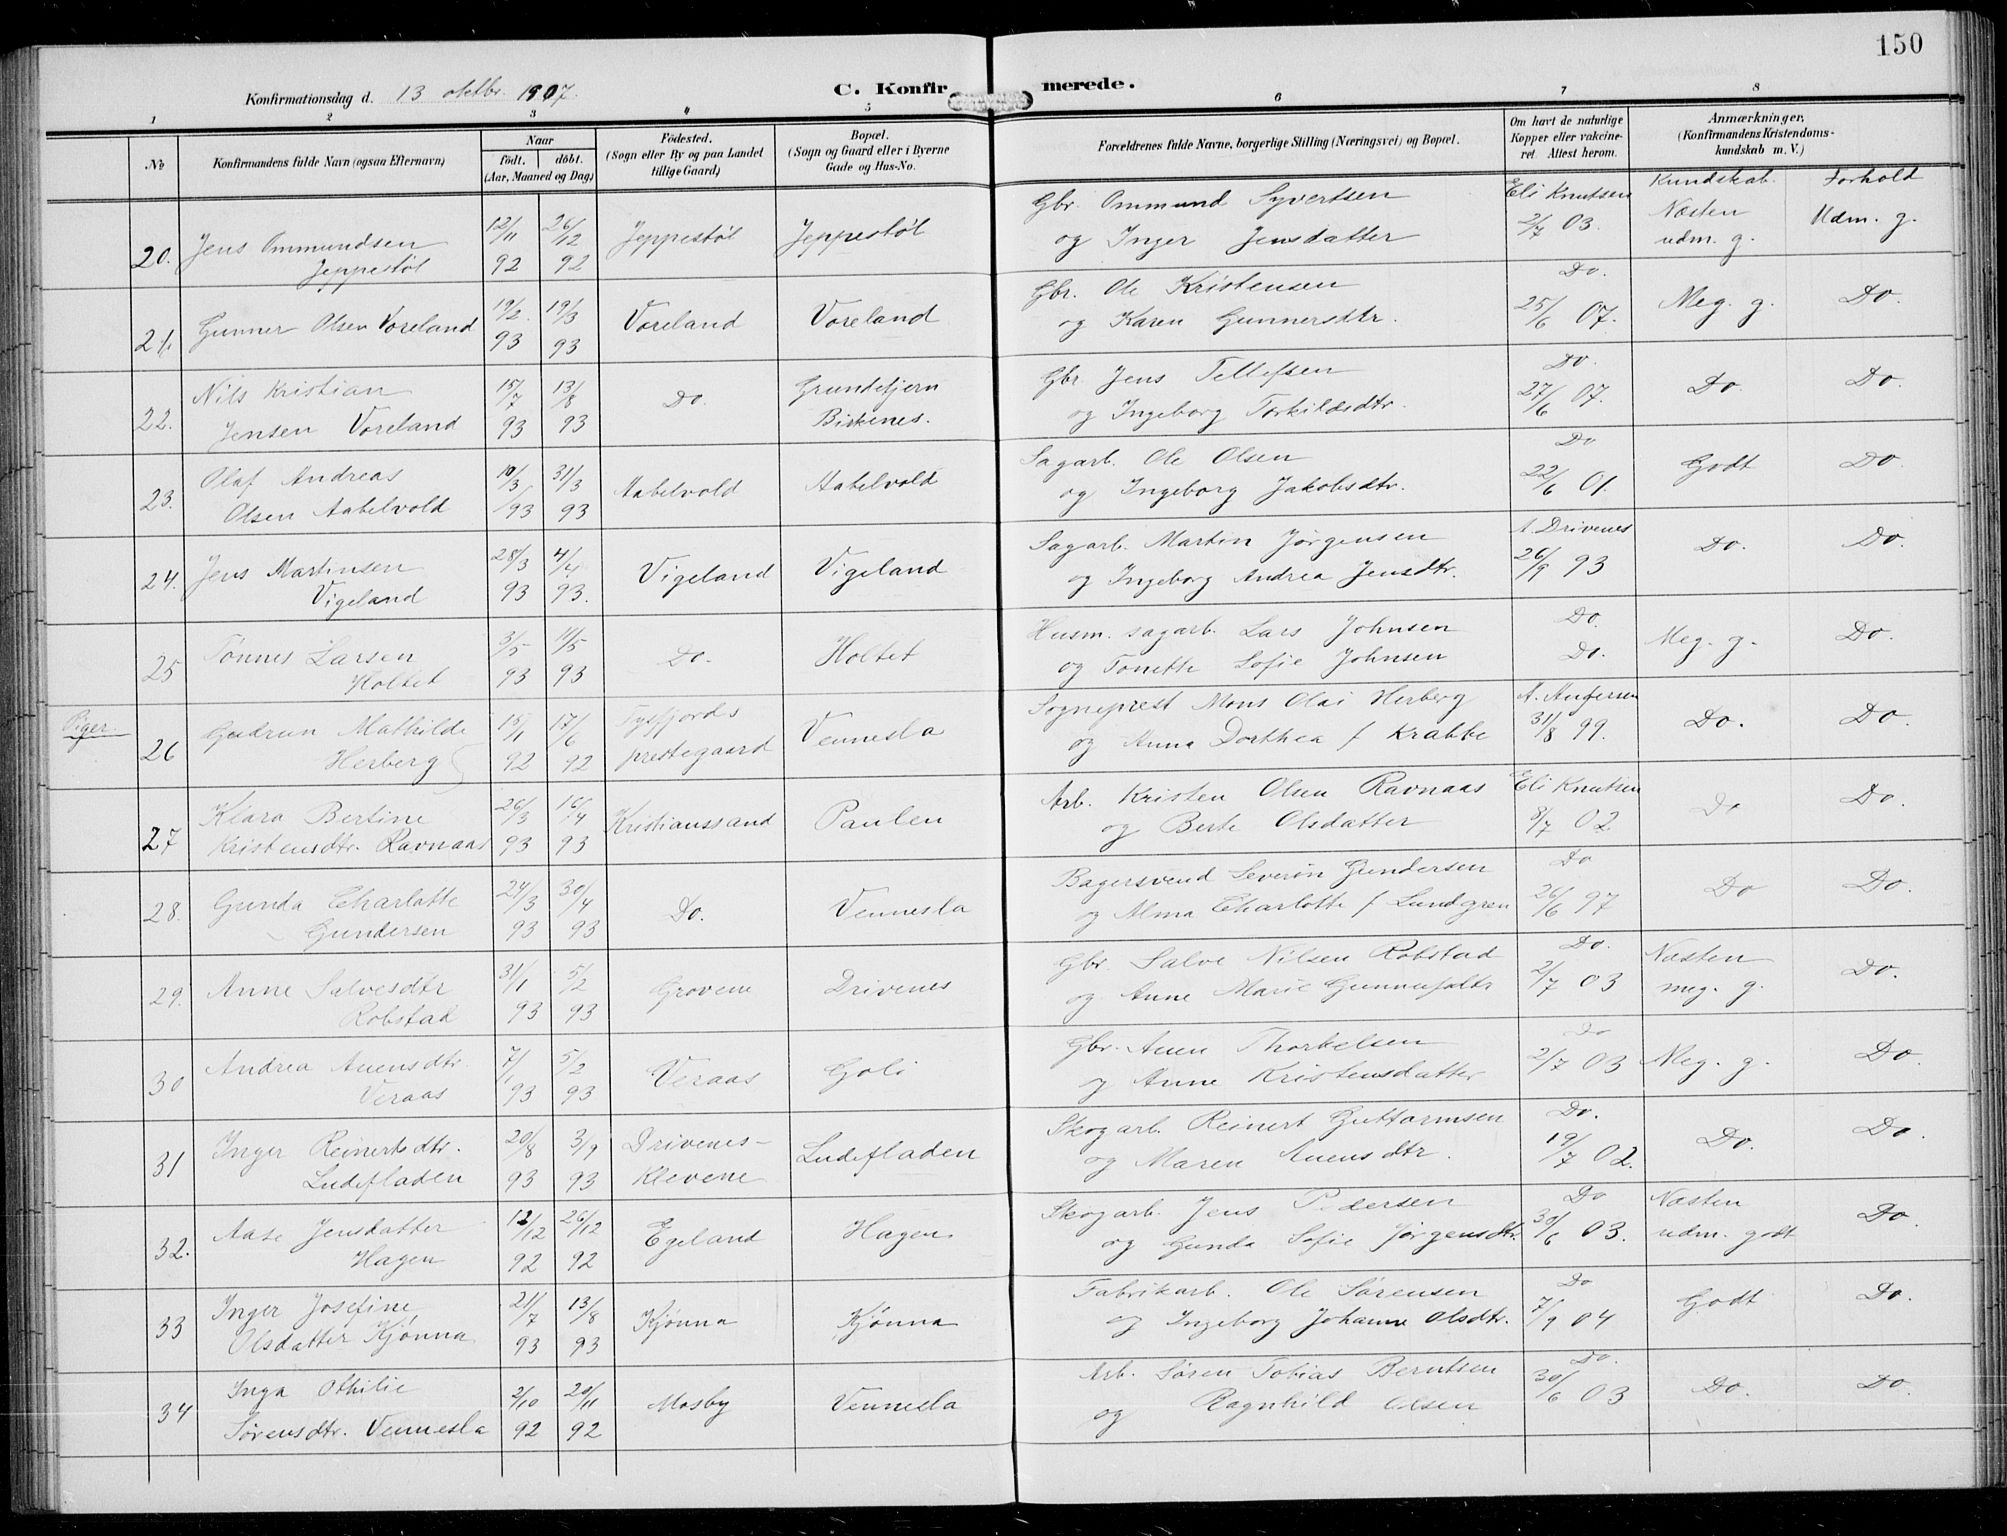 150
Konfirmationsdag d. 13 oktbr. 1907.
C. Konfirmerede.
1 2 3 4 5 6 7 8
No
Konfirmandens fulde Navn (ogsaa Efternavn)
Naar
födt. döbt.
(Aar, Maaned og Dag)
Födested.
(Sogn eller By og paa Landet
tillige Gaard)
Bopæl.
(Sogn og Gaard eller i Byerne
Gade og Hus-No.
Forældrenes fulde Navne, borgerlige Stilling (Næringsvei) og Bopæl.
Om havt de naturlige
Kopper eller vakcine-
ret. Attest herom.
Anmærkninger.
(Konfirmandens Kristendoms-
kundskab m. V.)
Kundskab. Forhold
20. Jens Ommundsen
Jeppestøl
12/11 92 26/12 92
Jeppestøl
Jeppestøl
Gbr. Ommund Syvertsen
og Inger Jensdatter
Eli Knutsen
2/7 03.
Næsten
udm. g.
Udm. g.
21. Gunner Olsen Voreland
19/2 93 19/3 93
Voreland
Voreland
Gbr. Ole Kristensen
og Karen Gunnersdtr.
Do.
25/6 07.
Meg. g.
Do.
22. Nils Kristian
Jensen Voreland
15/7 93 13/8 93
Do.
Grundetjern
Birkenes.
Gbr. Jens Tellefsen
og Ingeborg Torkildsdtr.
Do.
27/6 07.
Do.
Do.
23. Olaf Andreas
Olsen Aabelvold
10/3 93 31/3 93
Aabelvold
Aabelvold
Sagarb. Ole Olsen
og Ingeborg Jakobsdtr.
Do
22/6 01.
Godt
Do.
24. Jens Martinsen
Vigeland
28/3 93 4/4 93.
Vigeland
Vigeland
Sagarb. Martin Jørgensen
og Ingeborg Andrea Jensdtr.
A Drivenes
26/9 93
Do.
Do.
25 Tønnes Larsen
Holtet
3/5 93 11/5 93
Do.
Holtet
Husm. sagarb. Lars Johnsen
og Tonette Sofie Johnsen
Do.
Do.
Meg. g.
Do.
Piger
26 Gudrun Mathilde
Herberg
15/1 92 17/6 92
Tysfjords
prestegaard
Vennesla
Sogneprest Mons Olai Herberg
og Anna Dorthea f Krabbe
31/8 99.
Do.
Do.
27 Klara Bertine
Kristensdtr. Ravnaas
26/3 93 16/4 93
Kristianssand
Paulen
Arb. Kristen Olsen Ravnaas
og Berte Olsdatter
Eli Knutsen
8/7 02
Do
Do.
28. Gunda Charlotte
Gundersen
24/3 93 30/4 93
Do.
Vennesla
Bagersvend Severin Gundersen
og Alma Charlotte f Lundgren
Do
26/6 97
Do
Do.
29. Anne Salvesdtr
Robstad
31/1 93 5/2 93
Grovene
Drivenes
Gbr. Salve Nilsen Robstad
og Anne Marie Gunnufsdtr
Do.
2/7 03
Næsten
meg. g.
Do.
30 Andrea Auensdtr.
Veraas
7/1 93 5/2 93
Veraas
Goli
Gbr. Auen Thorkelsen
og Anne Kristensdatter
Do
2/7 03
Meg. g.
Do
31 Inger Reinertsdtr.
Ludefladen
20/8 93 3/9 93
Drivenes-
Klevene
Ludefladen
Skogarb. Reinert Guttormsen
og Maren Auensdtr.
Do.
19/7 02.
Do.
Do.
32. Aase Jensdatter
Hagen
12/12 92 26/12 92
Egeland
Hagen
Skogarb. Jens Pedersen
og Gunda Sofie Jørgensdtr.
Do
30/6 03.
Næsten
udm. godt
Do.
33 Inger Josefine
Olsdatter Kjønna
21/7 93 13/8 93
Kjønna
Kjønna
Fabrikarb. Ole Sørensen
og Ingeborg Johanne Olsdtr.
Do
7/9 04
Godt
Do.
34 Inga Othilie
Sørensdtr. Vennesla
2/10 92 20/11 92
Mosby
Vennesla
Arb. Søren Tobias Berntsen
og Ragnhild Olsen
Do.
30/6 03
Do.
Do.